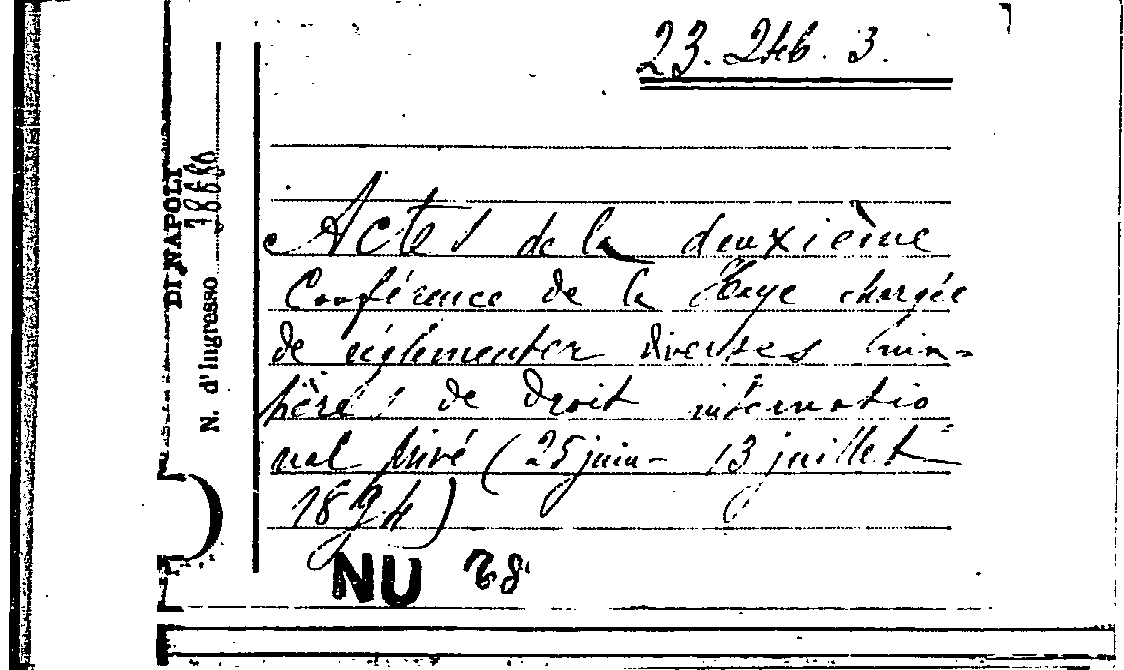 23. 246. 3.
DI NAPOLI
N. d'Ingresso 18680
Actes de la deuxième
Conférence de la Haye chargée
de réglementer diverses
de droit internatio
nal privé (25 juin - 13 juillet
1894)
NU 28